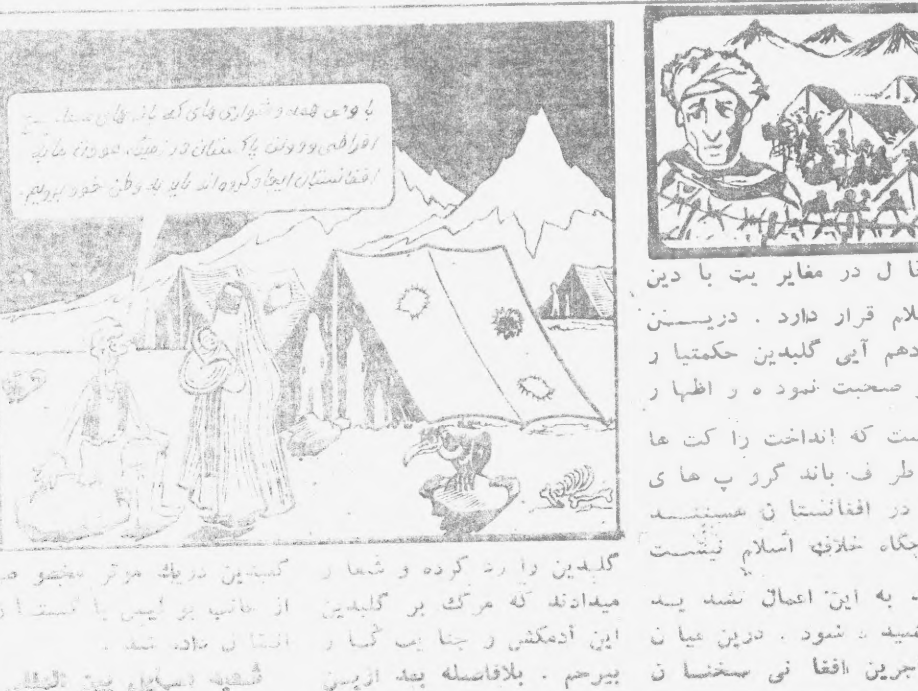 با وجود همه دشواری های که باندهای سیاسی
افراطی ودولت پاکستان در زمینه عودت ما به
افغانستان ایجاد کرده اند باید به وطن خود برویم.
قا ل در مغایر یت با دین
لام قرار دارد . دریـــــن
دهم آیی گلبدین حکمتیا ر
صحبت نمود ه و اظها ر
ست که انداخت را کت ها
طر ف باند گرو پ ها ی
در افغانستا ن هستنـــد
چگاه خلاف اسلام نیســت
به این اعمال تشد یــد
شود . درین میا ن
جرین افغا نی سخنـــا ن
گلبدین را رد کرده و شعا ر
میدادند که مرگ بر گلبدین
این آدمکش و جنا یت کا ر
بیرحم . بلافاصله بعد ازین
دریک موتر
از جانب پو لیس پا کستــا ن
داده شد .